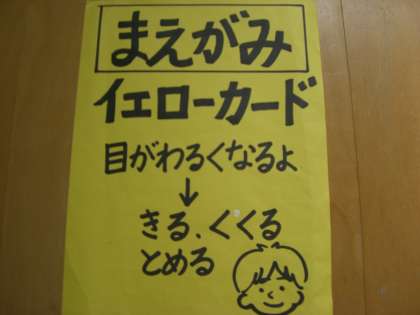 まえがみ
イエローカード
目がわるくなるよ
↓
きる、くくる
とめる